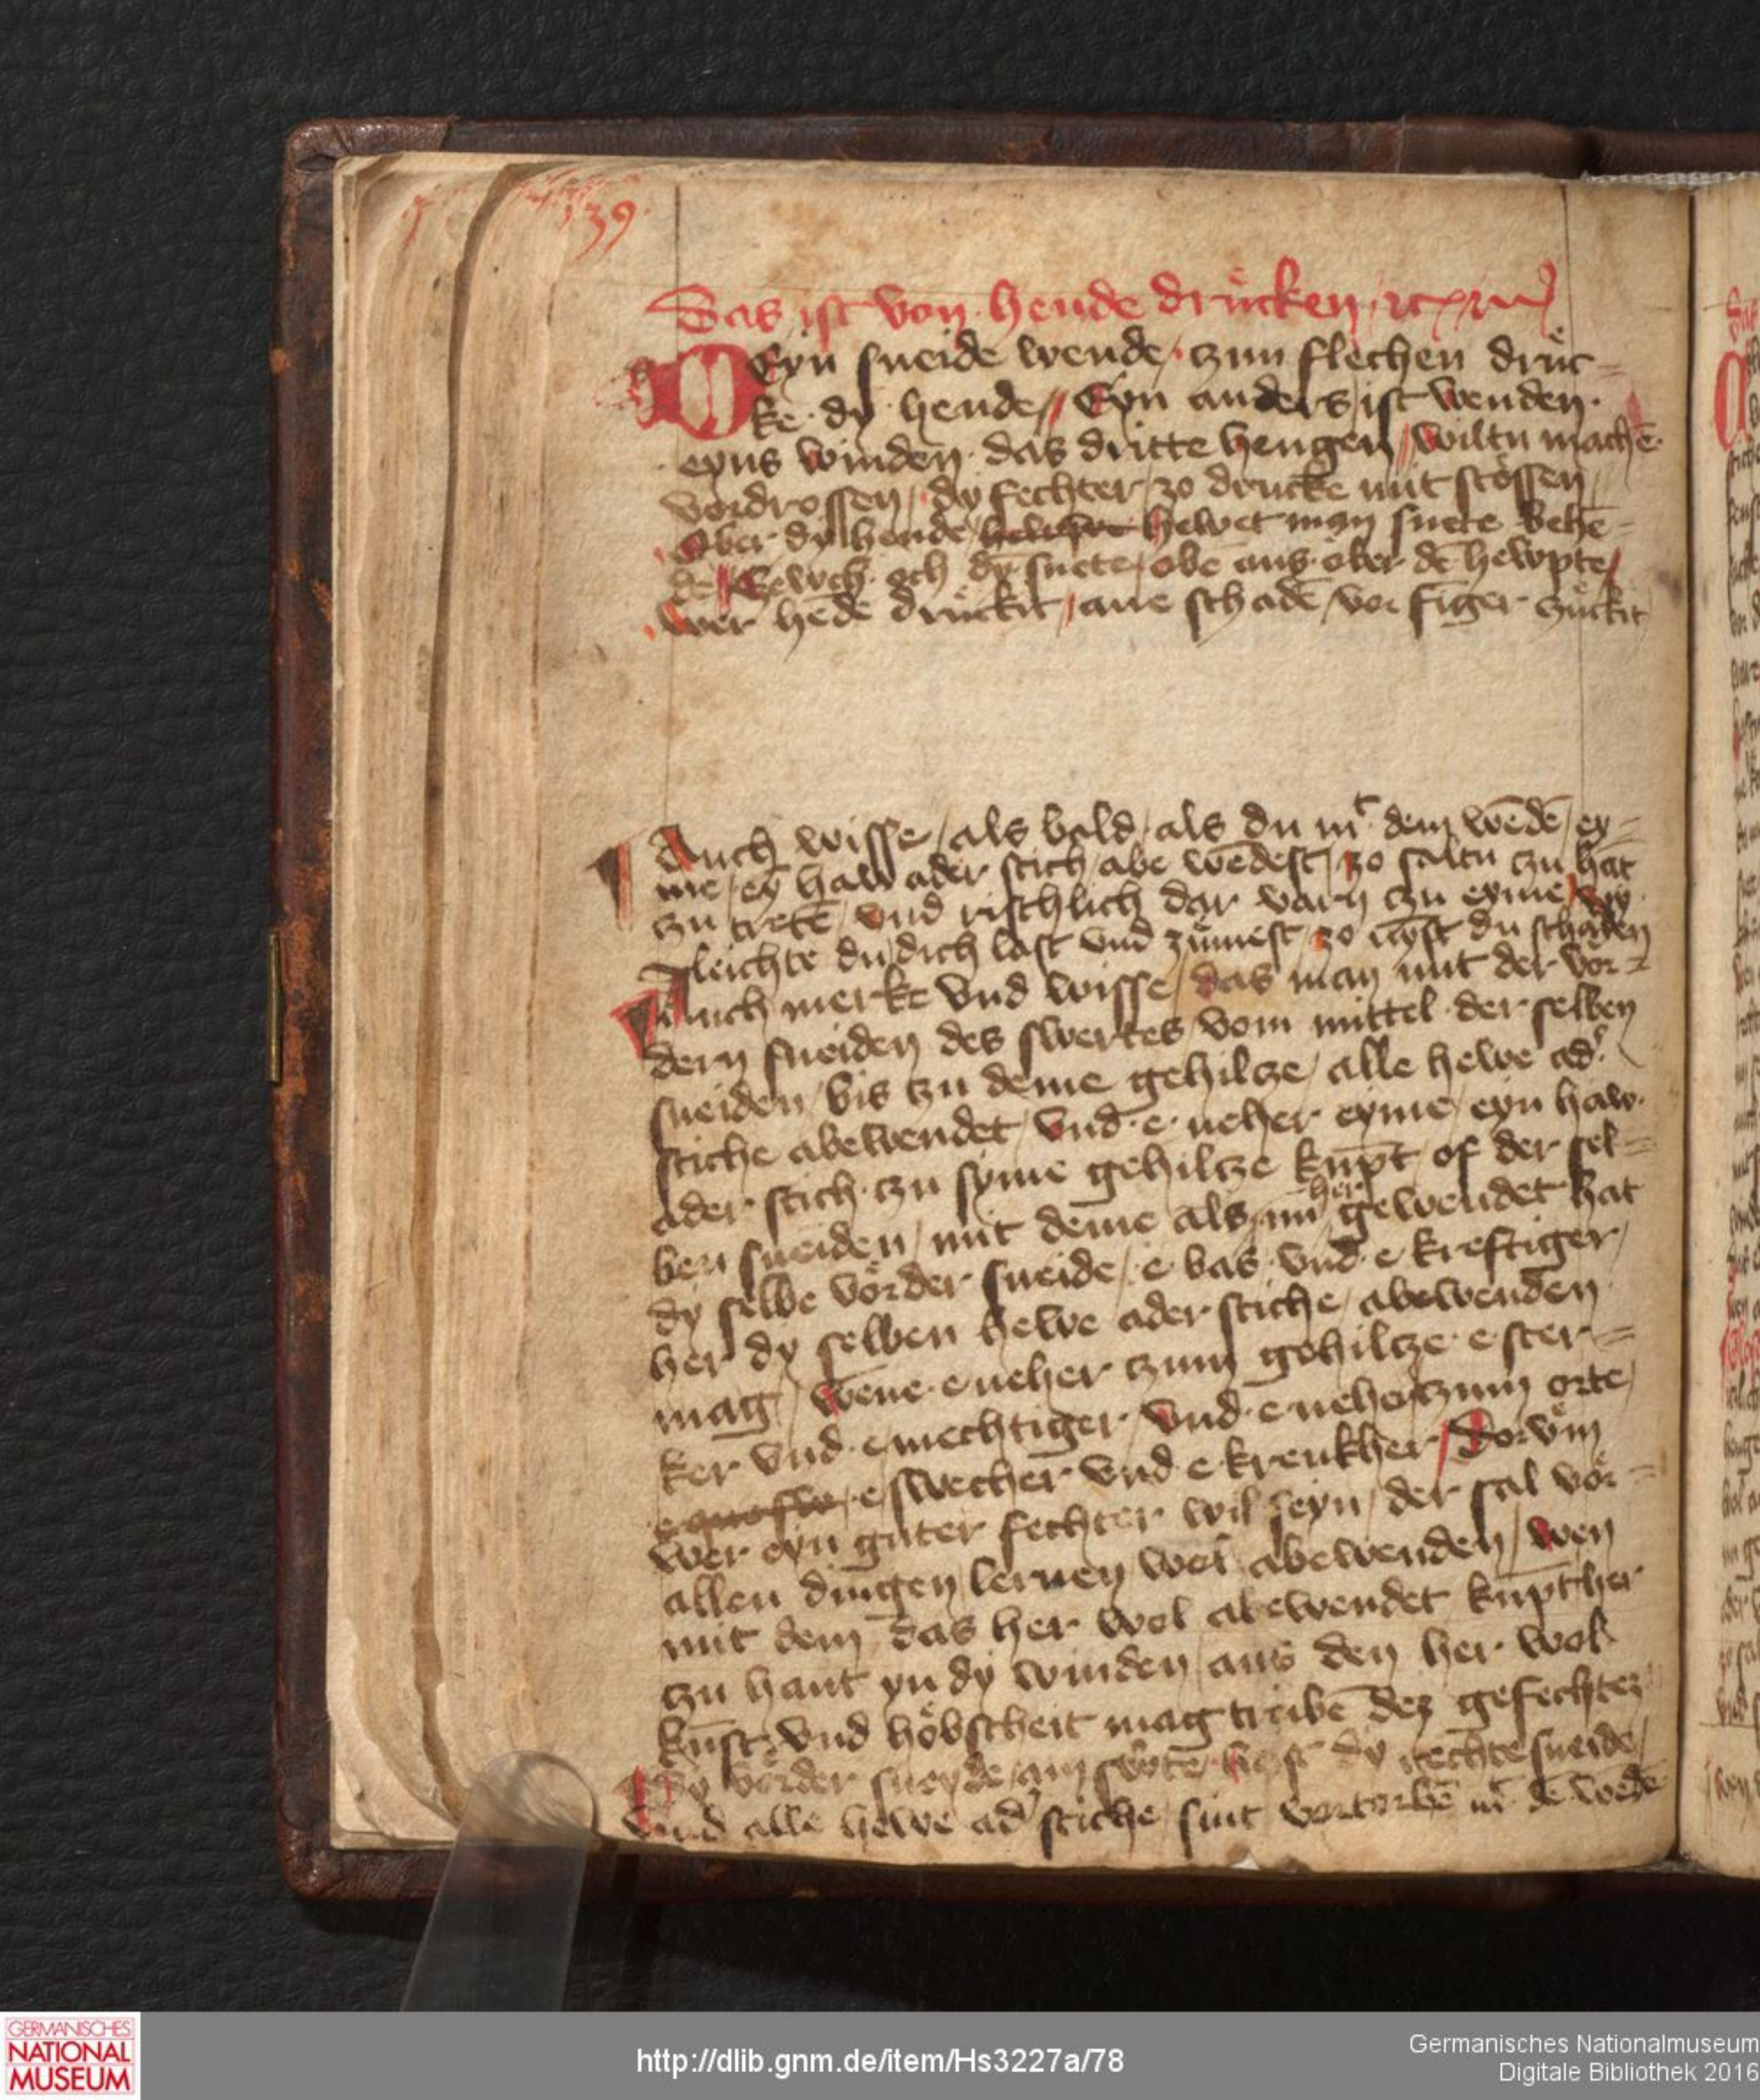 39
Das ist von hende drücken etc
Deyn sneide wende / zum flechen drüc=
ke dy hende // Eyn anders ist wenden
eyns winden das dritte hengen // wiltu machē
vordrossen / dy fechter / zo drucke mit stössen /
Ober dy hende / hewet man snete behē=
de / Czewch och dy snete / obē aus öber dē hewpte /
wer hēde drückit / ane schadē / vor fīger zückit
Auch wisse / als bald / als du mit dem wēdē / ey=
me / eȳ haw ader stich / abe wēdest / zo saltu zu hāt
zu tretē / und rischlich dar varn czu eyme / wy
leichte du dich last und zümest / zo nȳst du schaden
Auch merke und wisse / das man mit der vor=
dern sneiden des swertes / vom mittel der selben
sneiden / bis zu deme gehilcze / alle hewe ad'
stiche abewendet / und e neher eyme / eyn haw
ader stich czu syme gehiltze kūpt / of der sel=
ben sneiden / mit deme als her gewendet hat
dy selbe vörder sneide / e bas und e kreftiger /
her dy selben hewe ader stiche / abewenden
mag / wēne e neher czum gehiltze e ster=
ker und e mechtiger und e neher czum orte /
e swecher und e krenkher / Dorüm
wer eyn guter fechter wil seyn / der sal vör
allen dingen / lernen wol abewenden / wen
mit dem / das her wol abewendet / kūpt her
czu hant yn dy winden / aus den her wol
kūst und höbscheit mag treibē dez gefechtez
Dy vörder sneyde am swerte heist dy rechte sneide /
und alle hewe ad' stiche sint vortorbē mit dē wēdē
GERMANISCHES
NATIONAL
MUSEUM
http://dlib.gnm.de/item/Hs3227a/78
Germanisches Nationalmuseum
Digitale Bibliothek 2016